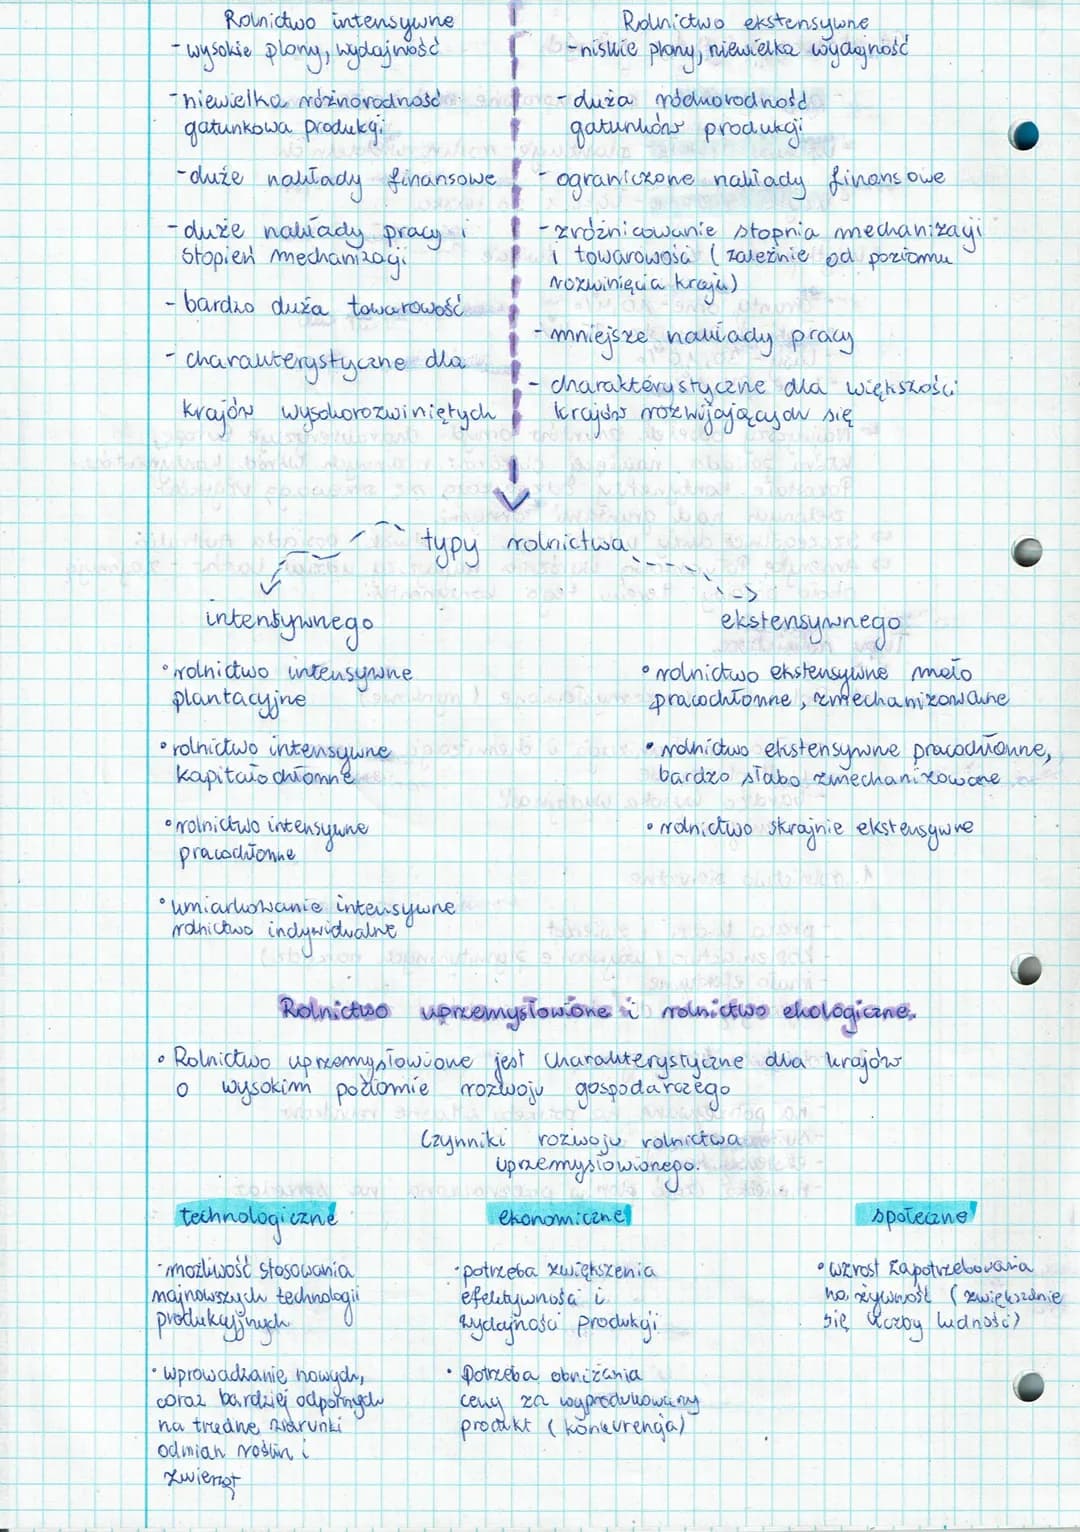 Rolnictwo intensywne
- wysokie plony, wydajność
- niewielka różnorodność
gatunkowa produkcji
- duże nakłady finansowe
- duże nakłady pracy i
stopień mechanizacji
- bardzo duża towarowość
- charakterystyczne dla
krajów wysokorozwiniętych
Rolnictwo ekstensywne
- niskie plony, niewielka wydajność
- duża różnorodność
gatunków produkcji
- ograniczone nakłady finansowe
- zróżnicowanie stopnia mechanizacji
i towarowości (zależnie od poziomu
rozwinięcia kraju)
- mniejsze nakłady pracy
- charakterystyczne dla większości
krajów rozwijających się
typy rolnictwa
intensywnego
• rolnictwo intensywne
plantacyjne
• rolnictwo intensywne
kapitałochłonne
• rolnictwo intensywne
pracochłonne
• umiarkowanie intensywne
rolnictwo indywidualne
ekstensywnego
• rolnictwo ekstensywne mało
pracochłonne, zmechanizowane
• rolnictwo ekstensywne pracochłonne,
bardzo słabo zmechanizowane
• rolnictwo skrajnie ekstensywne
Rolnictwo uprzemysłowione i rolnictwo ekologiczne.
• Rolnictwo uprzemysłowione jest charakterystyczne dla krajów
o wysokim poziomie rozwoju gospodarczego
Czynniki rozwoju rolnictwa
uprzemysłowionego.
technologiczne
• możliwość stosowania
najnowszych technologii
produkcyjnych
• wprowadzanie nowych,
coraz bardziej odpornych
na trudne warunki
odmian roślin i
zwierząt
ekonomiczne
• potrzeba zwiększenia
efektywności i
wydajności produkcji
• Potrzeba obniżania
ceny za wyprodukowany
produkt (konkurencja)
społeczne
• wzrost zapotrzebowania
na żywność (zwiększenie
się liczby ludności)